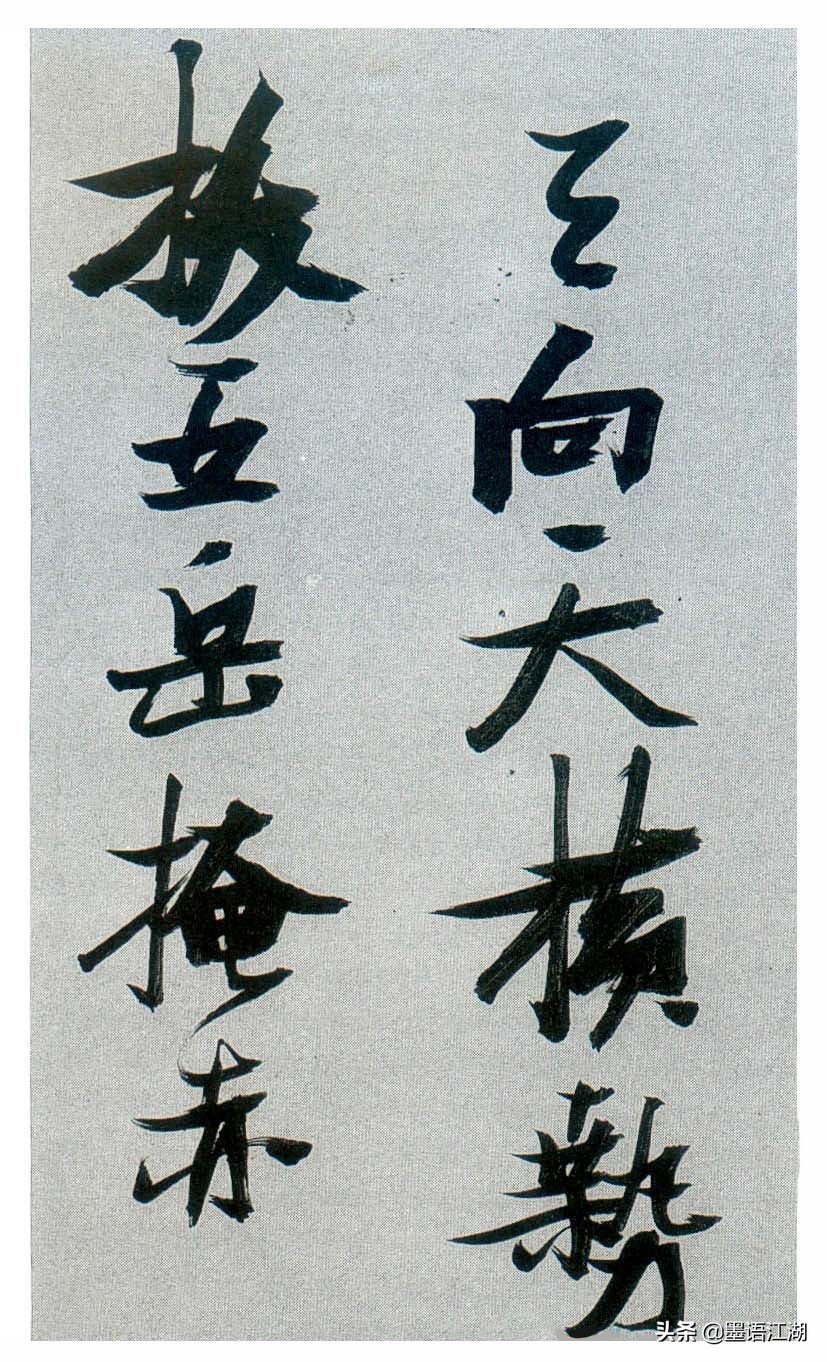 天向天横勢
拔五岳掩赤
头条 @墨语江湖